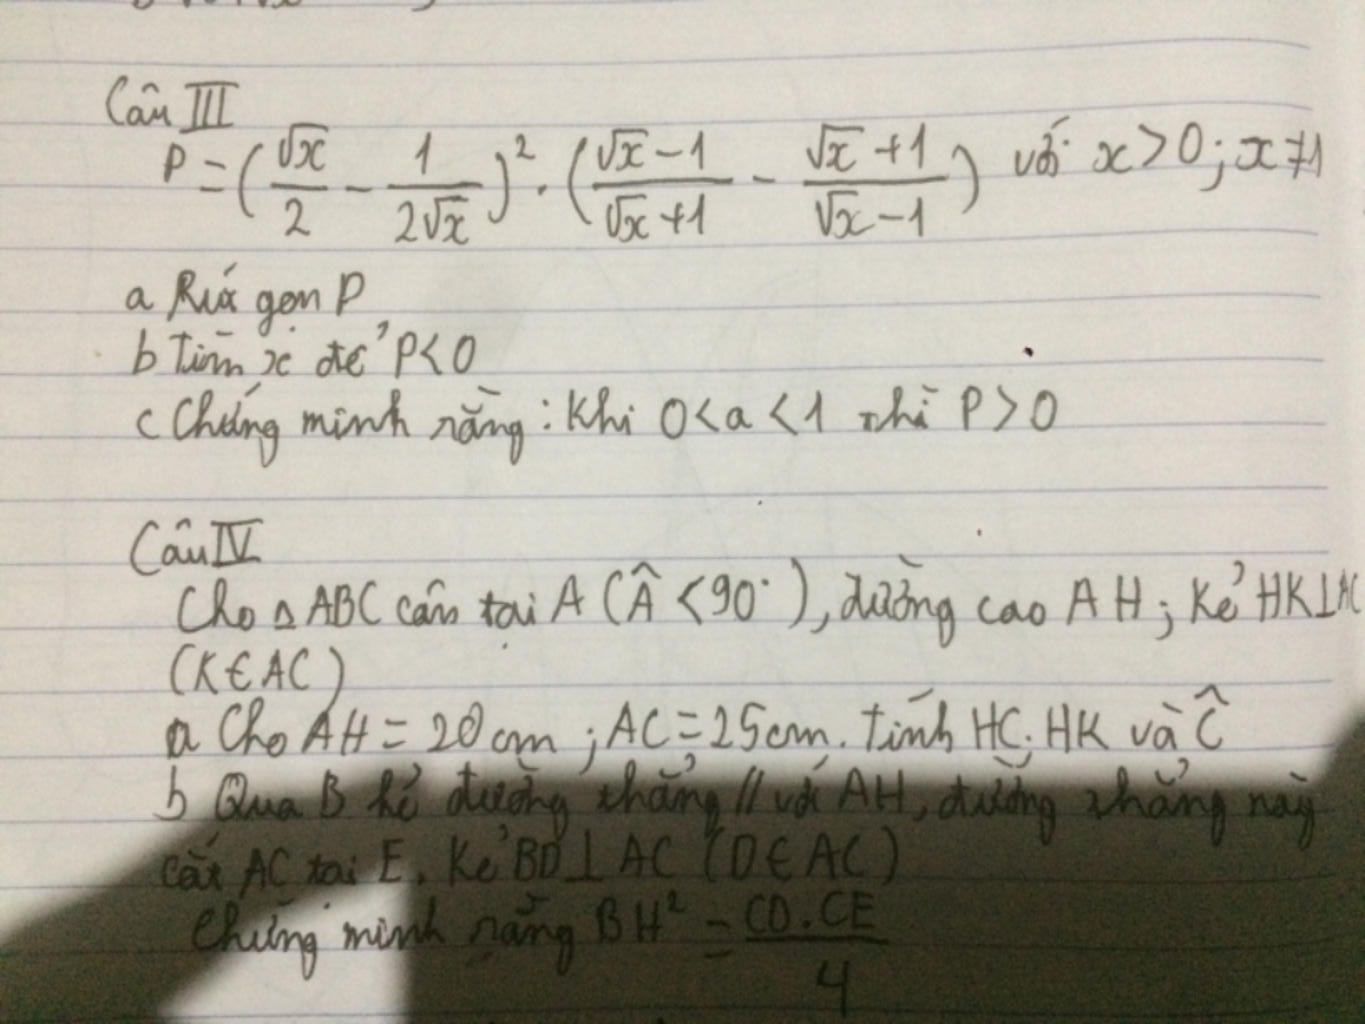 Câu III
P = (√x/2 - 1/2√x)² . (√x-1/√x+1 - √x+1/√x-1) với x>0; x≠1
a Rút gọn P
b Tìm x để P<0
c Chứng minh rằng: Khi 0<a<1 thì P>0
Câu IV
Cho △ABC cân tại A (Â <90°), đường cao AH; Kẻ HK⊥AC
(K∈AC)
a Cho AH = 20 cm; AC = 25cm. Tính HC; HK và Ĉ
b Qua B kẻ đường thẳng // với AH, đường thẳng này
cắt AC tại E. Kẻ BD⊥AC (D∈AC)
Chứng minh rằng BH² = CD.CE/4